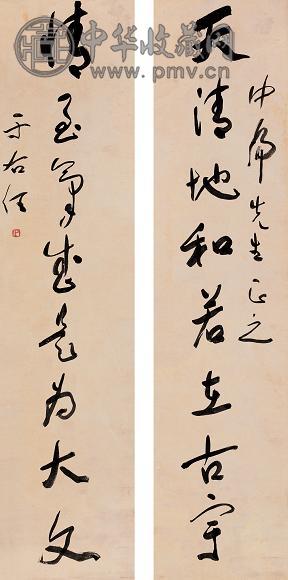 中华收藏网
www.pmv.cn
先生正之
天清地和若在古宇
情至氣盛是为大文
于右任